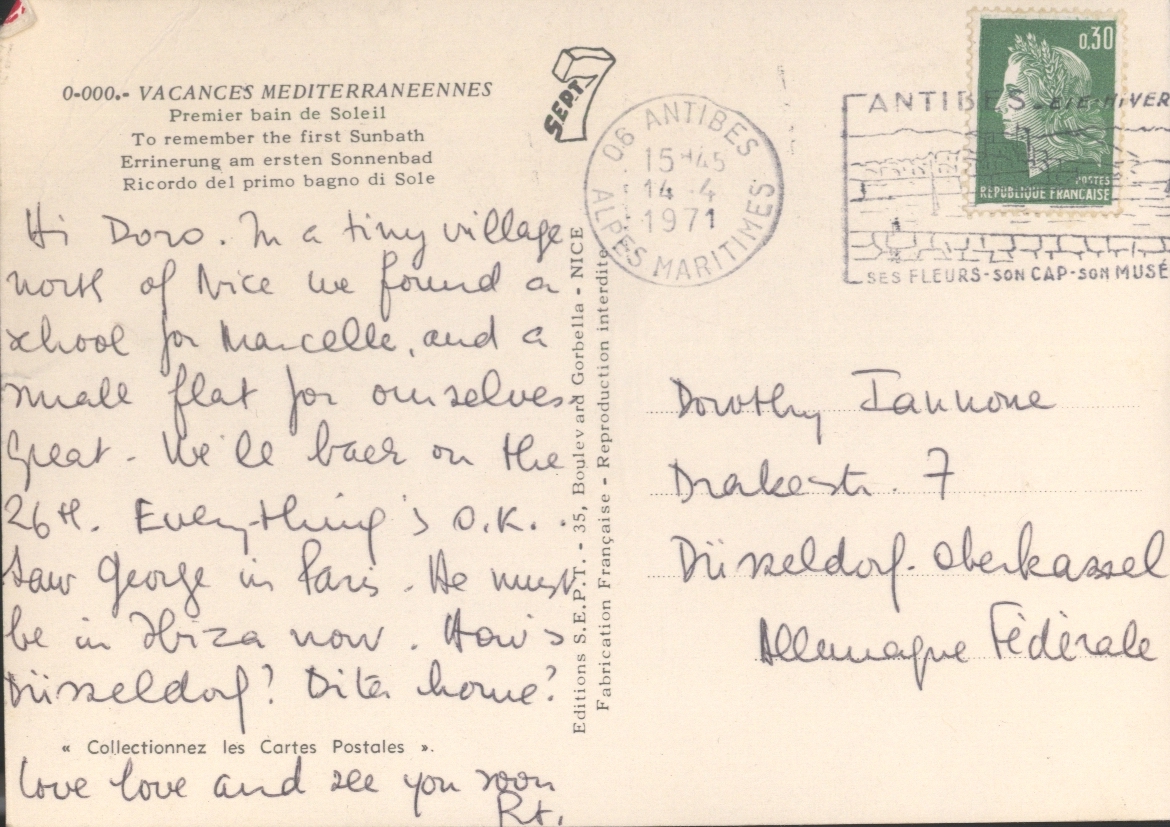 0-000.- VACANCES MEDITERRANEENNES
Premier bain de Soleil
To remember the first Sunbath
Errinerung am ersten Sonnenbad
Ricordo del primo bagno di Sole
Hi Doro. In a tiny village
north of Nice we found a
school for Marcelle, and a
small flat for ourselves.
Great. We'll back on the
26th. Everything's O.K..
Saw George in Paris. He must
be in Ibiza now. How's
Düsseldorf? Diter home?
« Collectionnez les Cartes Postales ».
Love love and see you soon
Rt.
SEPT. 7
Editions S.E.P.T. - 35, Boulevard Gorbella - NICE
Fabrication Française - Reproduction interdite
06 ANTIBES
15 H45
14 - 4
1971
ALPES MARITIMES
ANTIBES - ETE-HIVER
SES FLEURS-SON CAP-SON MUSÉ
0,30
POSTES
REPUBLIQUE FRANÇAISE
Dorothy Iannone
Drakestr. 7
Düsseldorf-Oberkassel
Allemagne Fédérale